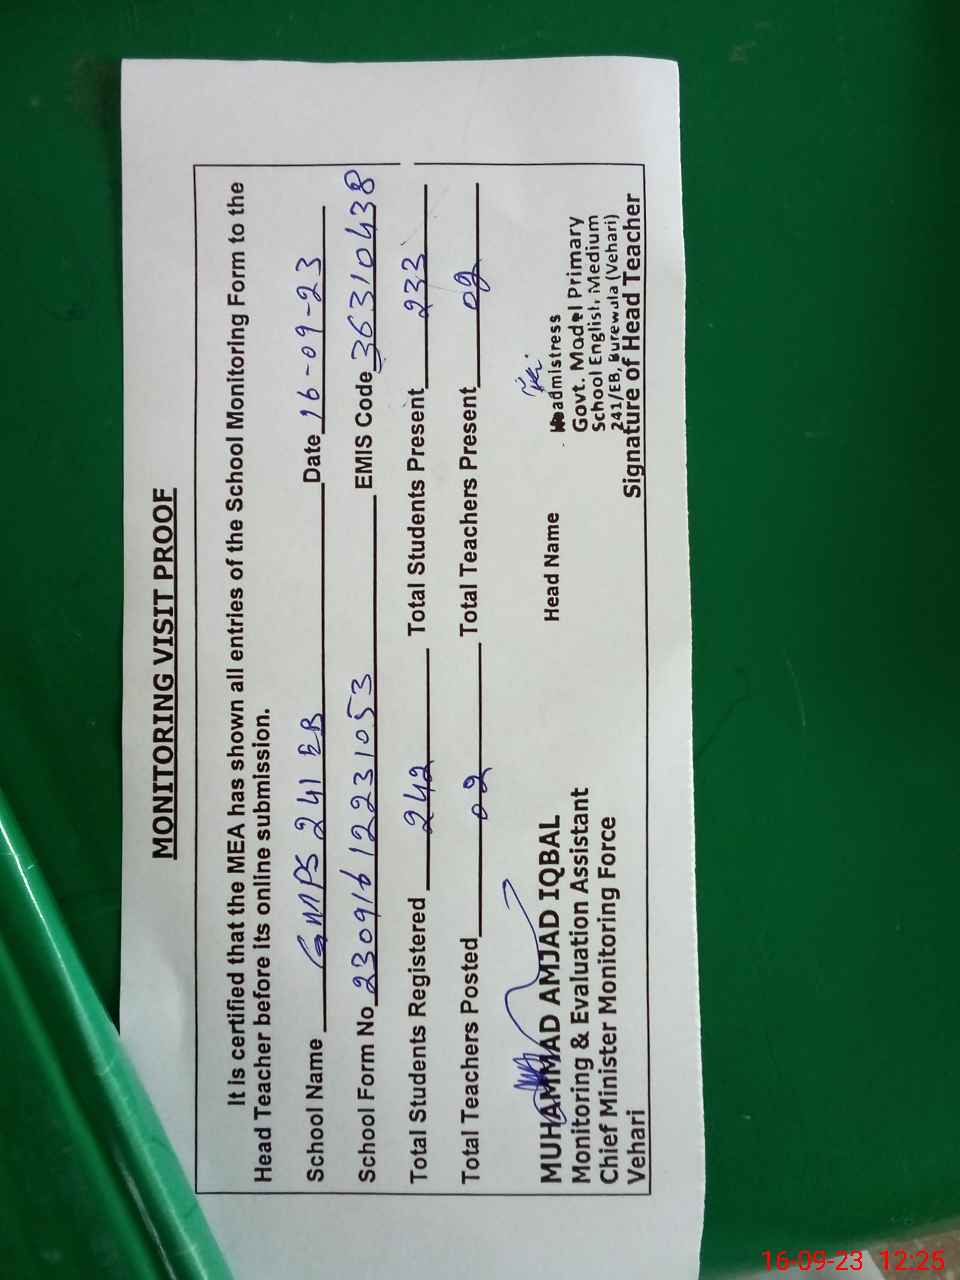 MONITORING VISIT PROOF
It is certified that the MEA has shown all entries of the School Monitoring Form to the
Head Teacher before its online submission.
School Name GMPS 241 EB Date 16-09-23
School Form No 23091612231053 EMIS Code 36310438
Total Students Registered 242 Total Students Present 233
Total Teachers Posted 02 Total Teachers Present 02
MUHAMMAD AMJAD IQBAL
Monitoring & Evaluation Assistant
Chief Minister Monitoring Force
Vehari
Head Name
Headmistress
Govt. Model Primary
School English, Medium
241/EB, Burewala (Vehari)
Signature of Head Teacher
16-09-23 12:25